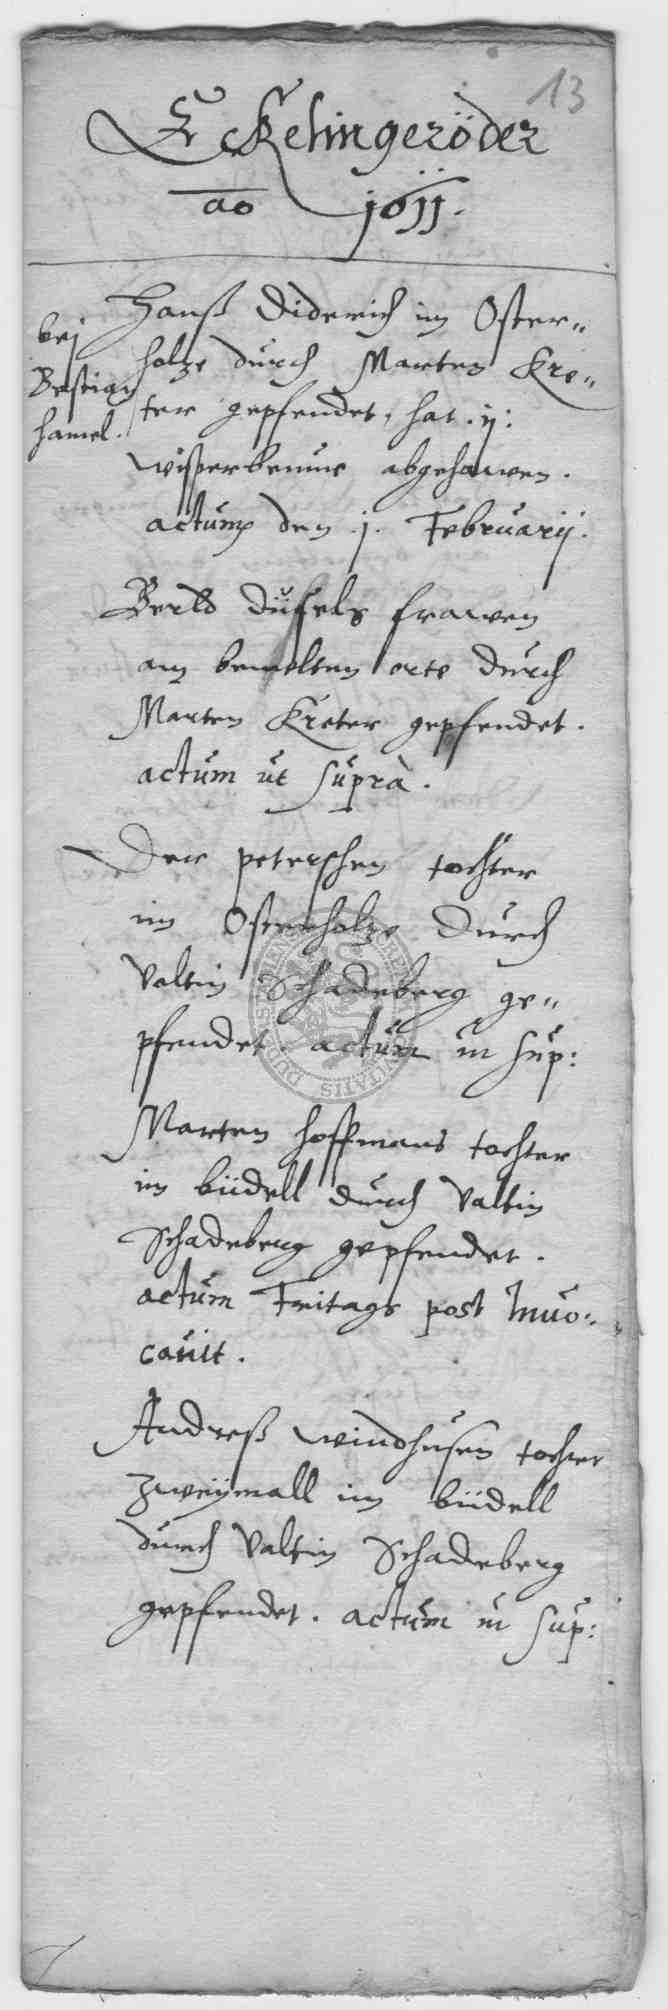 13
Eckelingeröder
ao 1611.
bej
Bastian
hamel.
Hanß Diderich im Oster„
holtze durch Marten Kre„
ter gepfendet, hat .ij:
abgehawen.
actum den .j. Februarij.
Berld Düfels frawen
am bemelten orte durch
Marten Kreter gepfendet.
actum ut suprà.
Der peterschen tochter
im Osterholtze durch
Valtin Schadeberg ge„
pfendet. actum ut sup:
Marten hoffmans tochter
im büdell durch Valtin
Schadeberg gepfendet.
actum Freitags post Inuo„
cauit.
Andreß windhusen tochter
zweijmall im büdell
durch Valtin Schadeberg
gepfendet. actum ut sup: